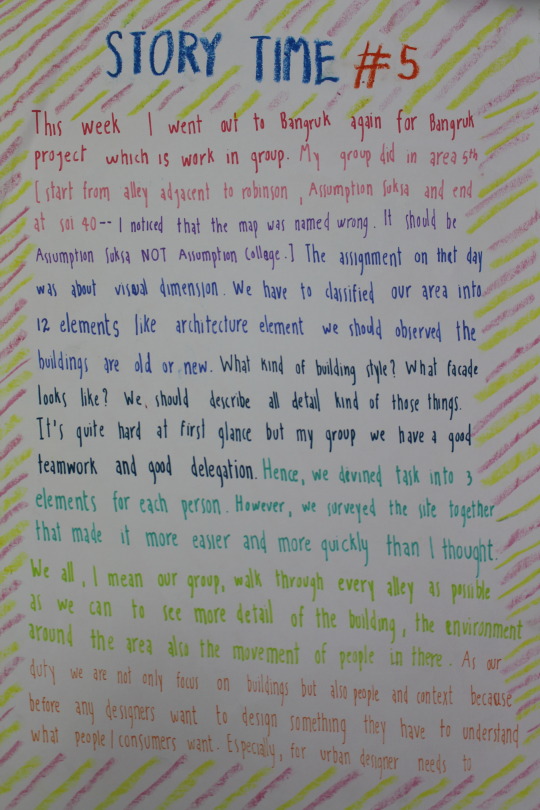 STORY TIME #5
This week I went out to Bangruk again for Bangruk
project which is work in group. My group did in area 5th.
[start from alley adjacent to robinson, Assumption Suksa and end
at soi 40-- I noticed that the map was named wrong. It should be
Assumption Suksa NOT Assumption College.] The assignment on that day
was about visual dimension. We have to classified our area into
12 elements like architecture element we should observed the
buildings are old or new. What kind of building style? What facade
looks like? We, should describe all detail kind of those things.
It's quite hard at first glance but my group we have a good
teamwork and good delegation. Hence, we devined task into 3
elements for each person. However, we surveyed the site together
that made it more easier and more quickly than I thought.
We all, I mean our group, walk through every alley as possible
as we can to see more detail of the building, the environment
around the area also the movement of people in there. As our
duty we are not only focus on buildings but also people and context because
before any designers want to design something they have to understand
what people/consumers want. Especially, for urban designer needs to